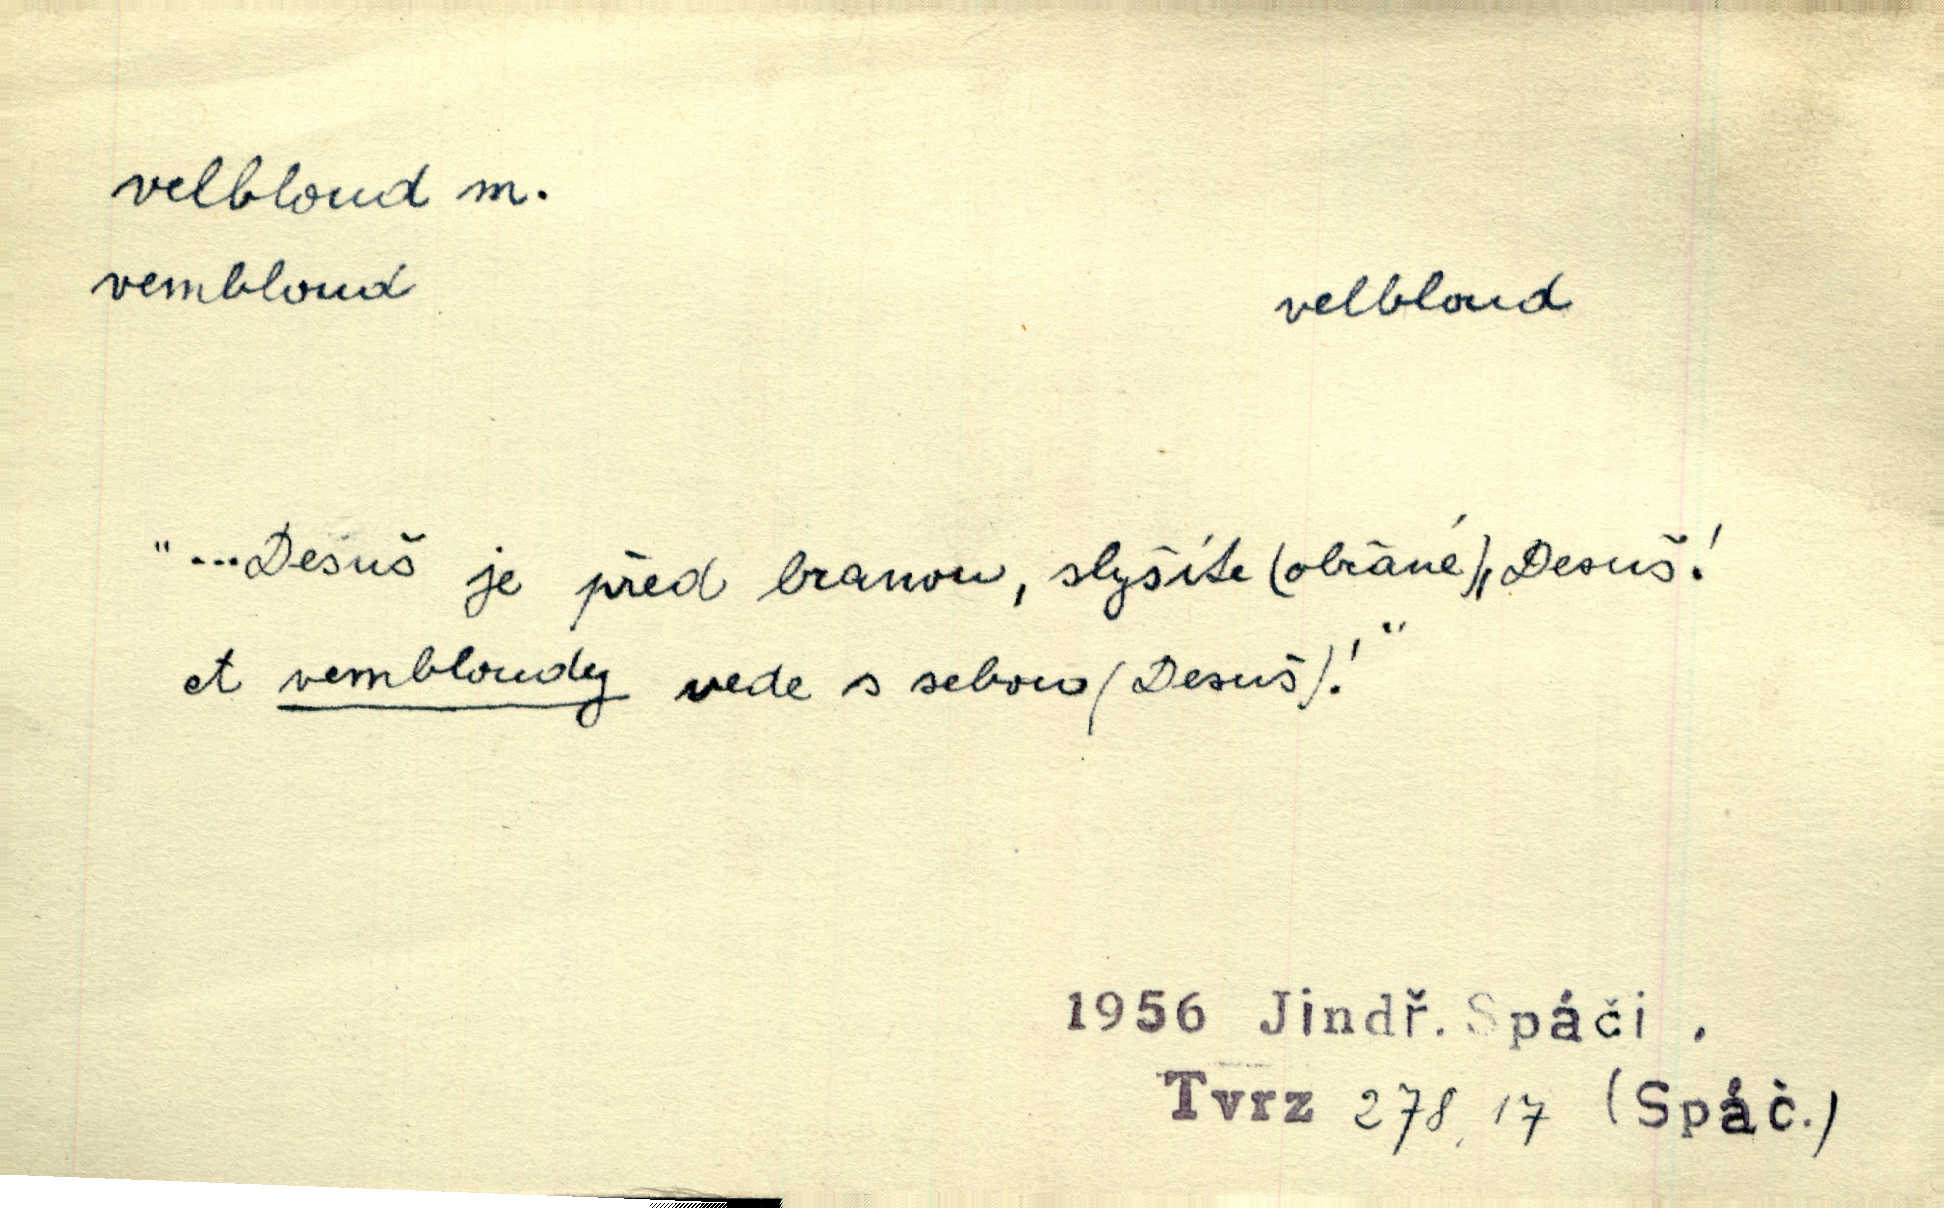 velbloud m.
vembloud
velbloud
"...Desuš je před branou, slyšíte (občané), Desuš!
et vembloudy vede s sebou (Desuš)!"
1956 Jindř. Spáči .
Tvrz 278, 17 (Spáč.)